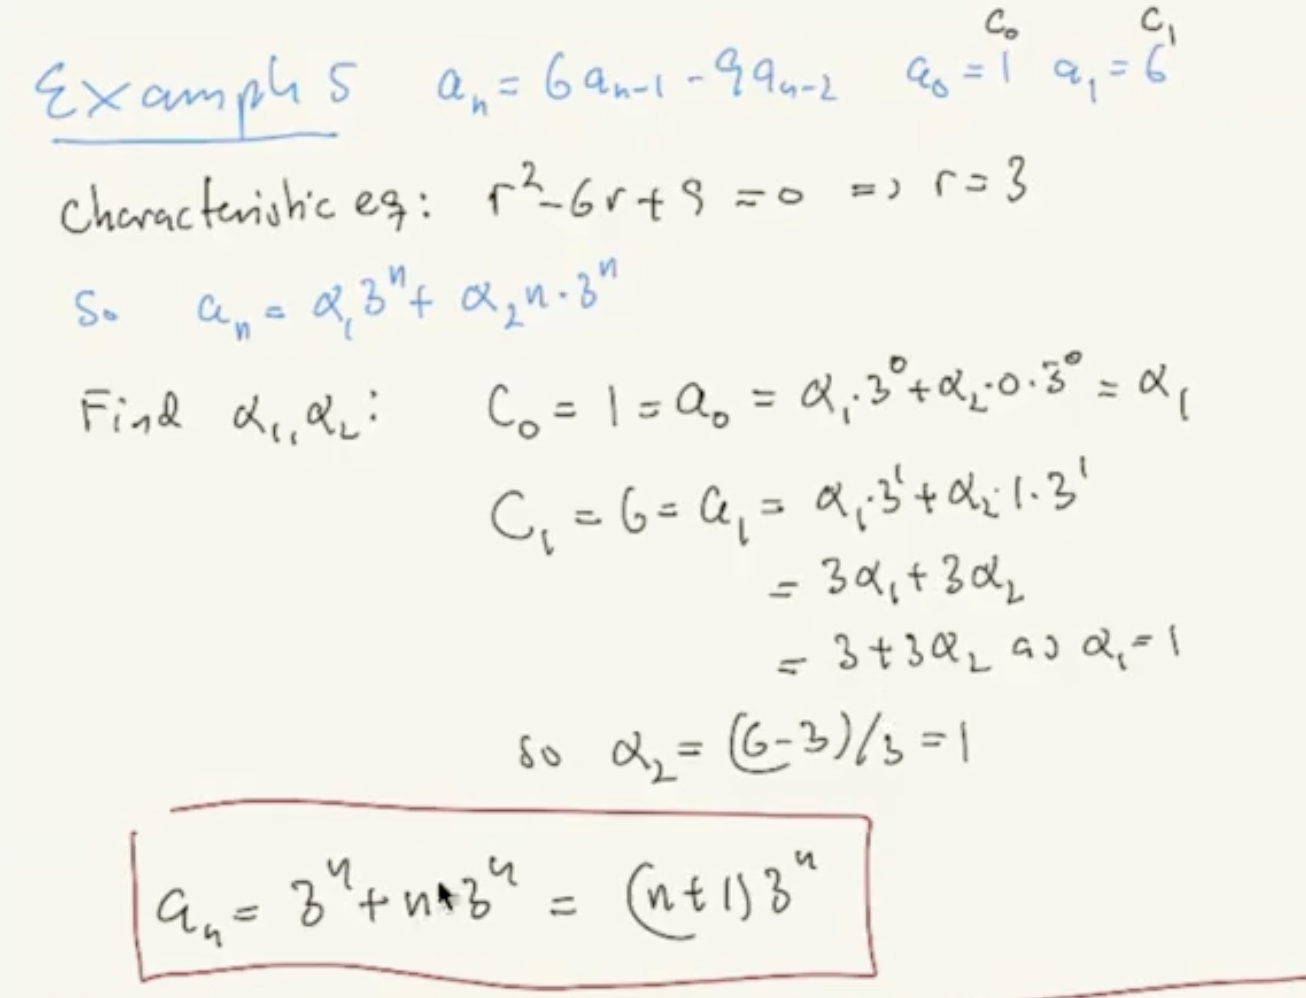 C₀ C₁
Example 5 aₙ = 6aₙ₋₁ - 9aₙ₋₂ a₀ = 1 a₁ = 6
Characteristic eq: r² - 6r + 9 = 0 => r = 3
So aₙ = α₁3ⁿ + α₂n·3ⁿ
Find α₁, α₂: C₀ = 1 = a₀ = α₁·3⁰ + α₂·0·3⁰ = α₁
C₁ = 6 = a₁ = α₁·3¹ + α₂·1·3¹
= 3α₁ + 3α₂
= 3 + 3α₂ as α₁ = 1
so α₂ = (6-3)/3 = 1
aₙ = 3ⁿ + n·3ⁿ = (n+1)3ⁿ